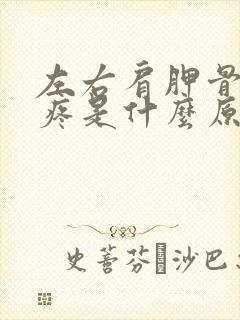 左右肩胛骨
疼是什麼原
史蒈芬 沙巴